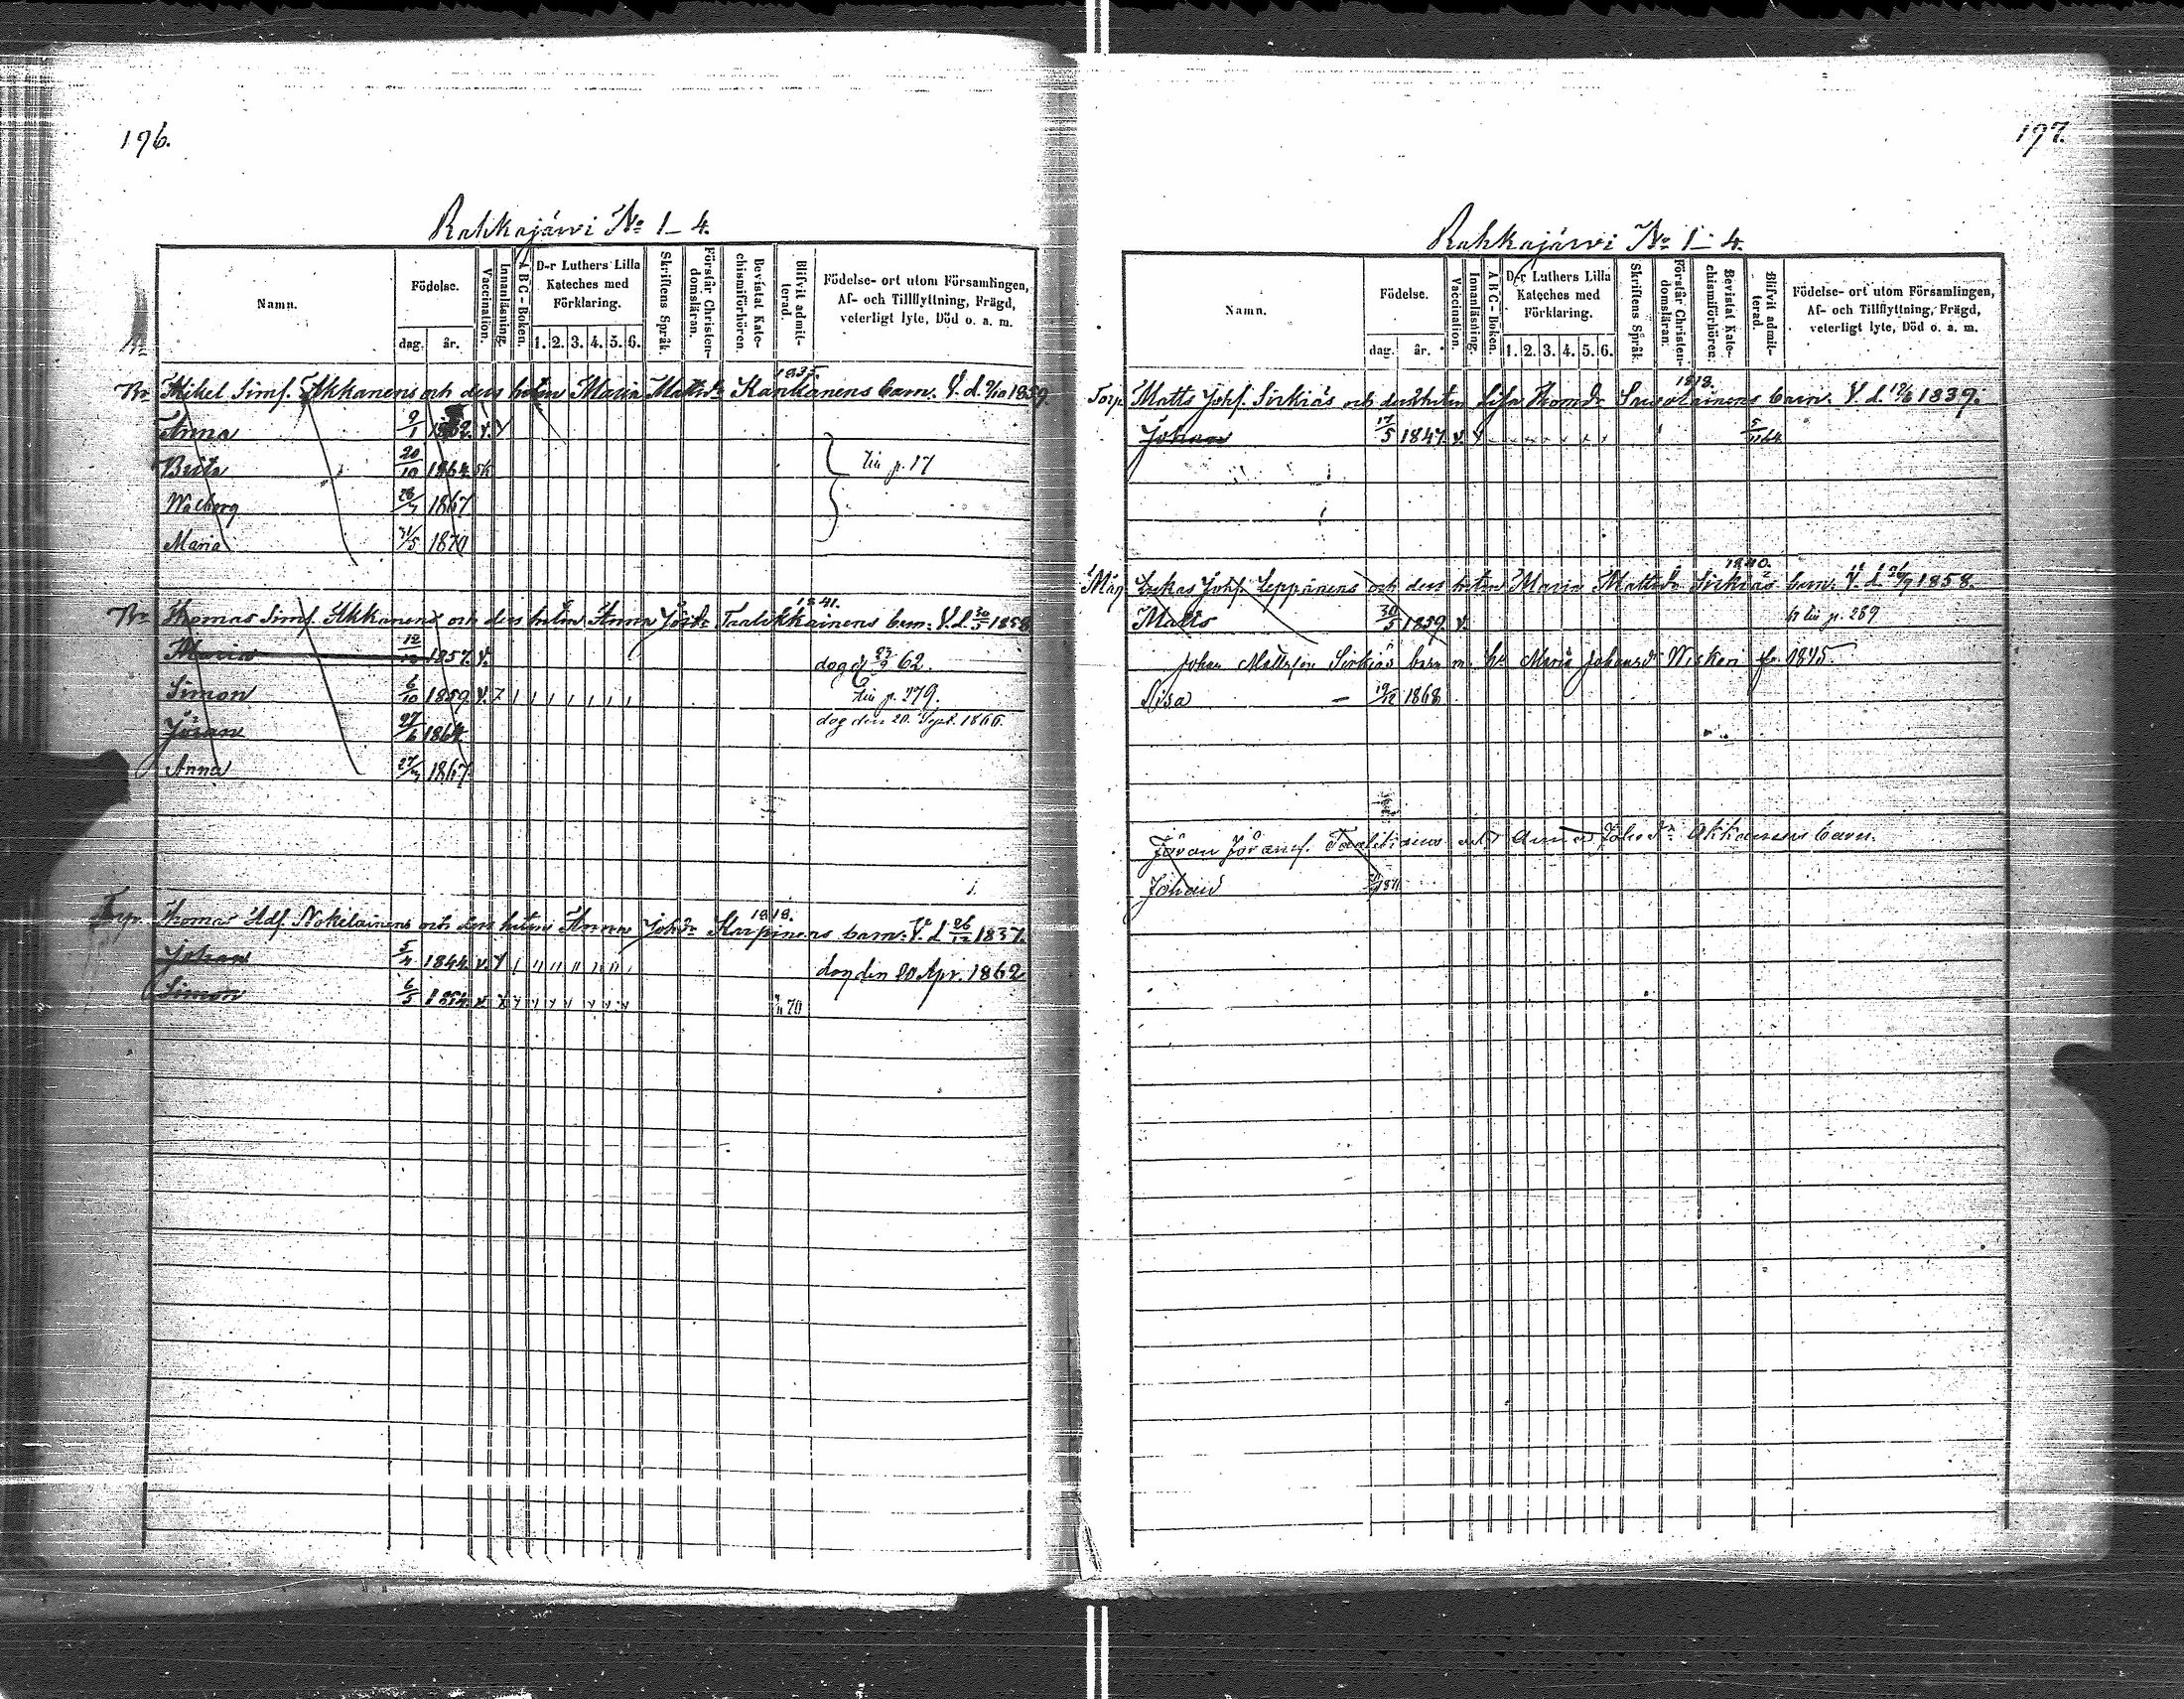 196.
Rahkajärvi No 1-4.
Namn.
Födelse.
dag.
år.
Vaccination.
Innanläsning.
A B C - Boken.
D-r Luthers Lilla Kateches med Förklaring.
1. 2. 3. 4. 5. 6.
Skriftens Språk.
Förstår Christendomsläran.
Bevistat Katechismiförhören.
Blifvit admitterad.
Födelse- ort utom Församlingen, Af- och Tillflyttning, Frägd, veterligt lyte, Död o. a. m.
1835.
Mikel Simf. Akkanens och dess hstru Maria Mattsdr Karhanens barn. V. d. 9/10 1859
Anna 9/1 1862. v. Y
Brita 20/10 1864
Walborg 28/7 1867
Maria 31/5 1870
tin p. 17
1841.
Thomas Simf. Akkanens och dess hstru Anna Jörsdr Taalikkainens barn: V. d. 30/5 1858
Maria 12/12 1857. v. dog d 27/9 62.
Simon 6/10 1859. v. tin p. 279.
Jöran 27/6 1864 dog den 20. Sept. 1866.
Anna 27/7 1867
1818.
Torp. Thomas Adf. Nokelainens och dess hstru Anna Johdr Karpinens barn: V. d 26/12 1837.
Johan 5/4 1844. v. Y dog den 20 Apr. 1862
Simon 6/5 70
197.
Rahkajärvi No 1-4.
Namn.
Födelse.
dag.
år.
Vaccination.
Innanläsning.
A B C - Boken.
D-r Luthers Lilla Kateches med Förklaring.
1. 2. 3. 4. 5. 6.
Skriftens Språk.
Förstår Christendomsläran.
Bevistat Katechismiförhören.
Blifvit admitterad.
Födelse- ort utom Församlingen, Af- och Tillflyttning, Frägd, veterligt lyte, Död o. a. m.
1818.
Torp. Matts Johf. Sirkiäs och dess hstru Lisa Thomdr barn. V. d. 1839.
Johan 17/5 1847. v. 64
1840.
Måg Lukas Johf. Leppänens och dess hstru Maria Mattsdr Sirkiäs barn. V. d. 1858.
Matts 30/5 1859. v. tin p. 269
Johan Mattsson Sirkiäs barn m. h. Maria Johansdr 1845
Lisa - 19/12 1868
Jöran Jöransf. och Anna Johsdr Akkanens barn.
Johan